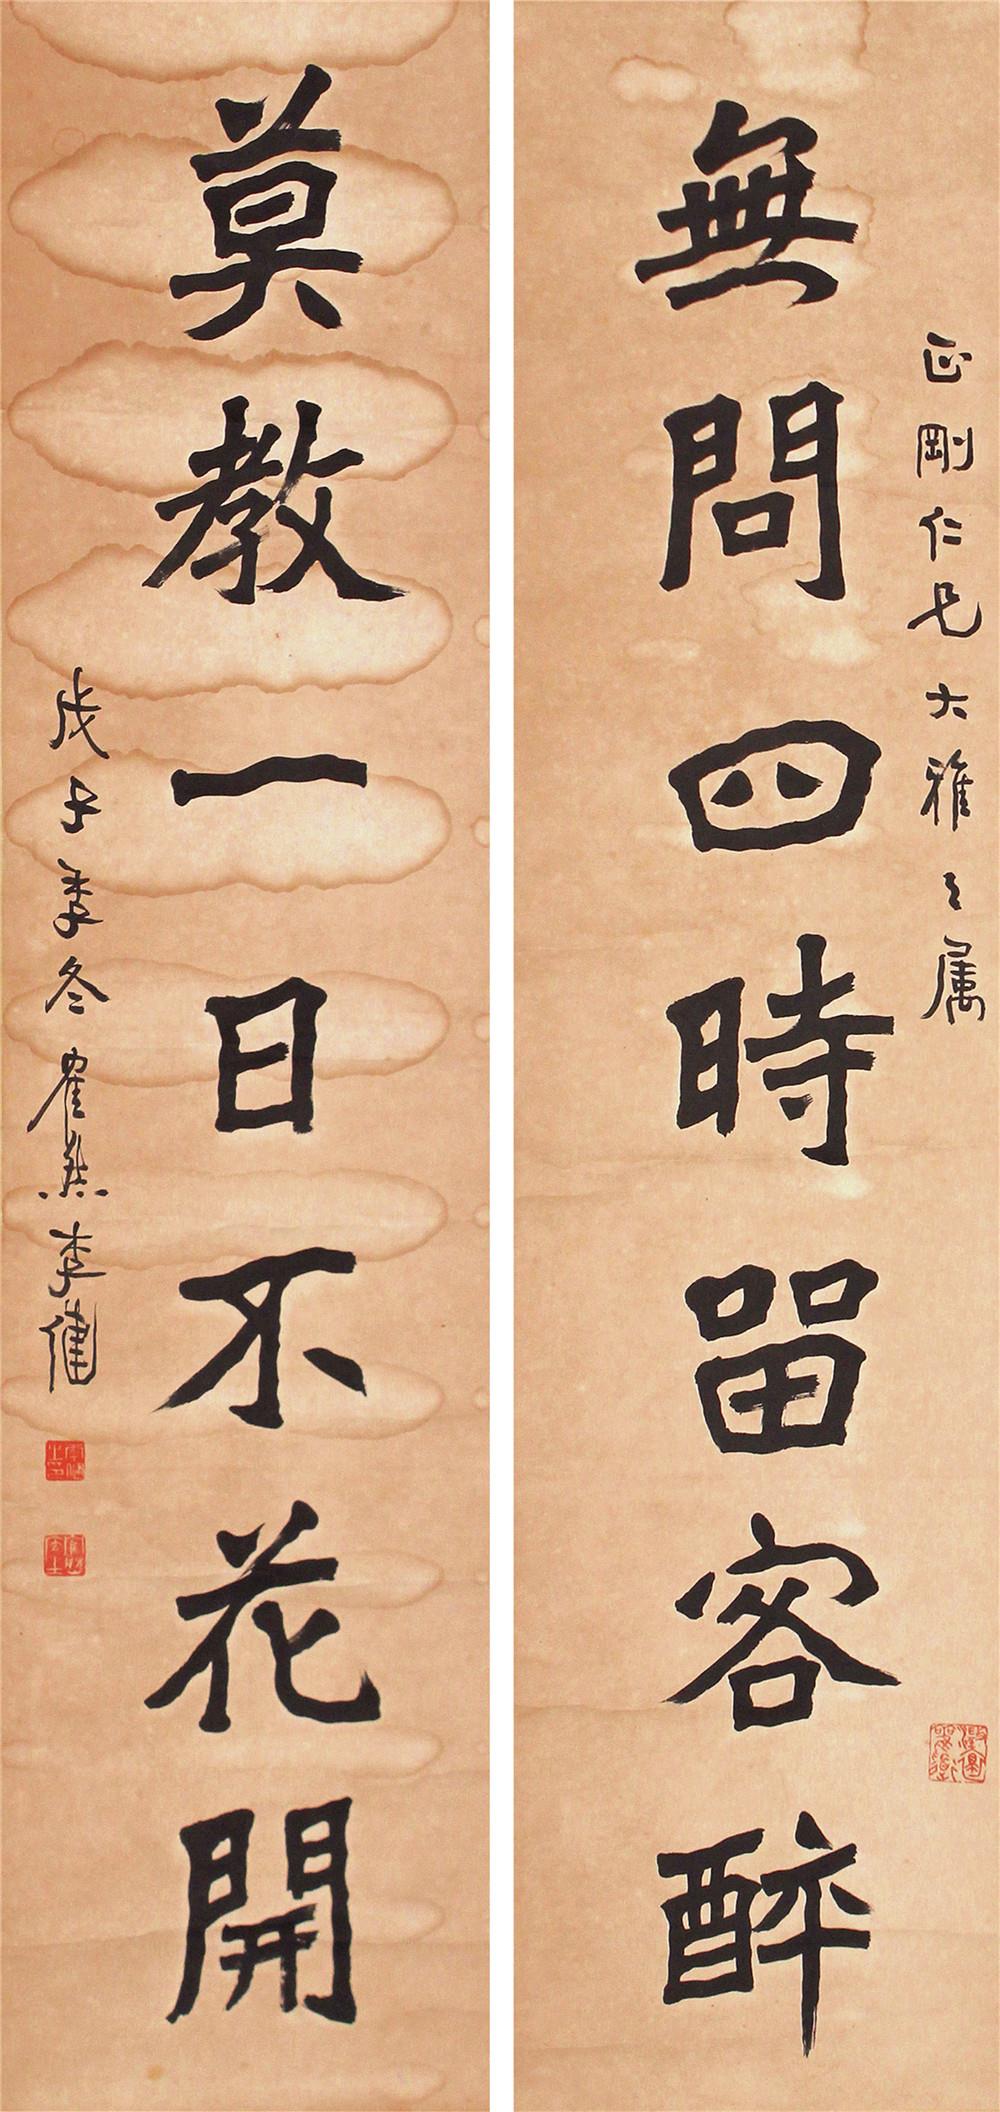 正剛仁兄大雅之属
無問四時留客醉
莫教一日不花開
戊子季冬崔然李健